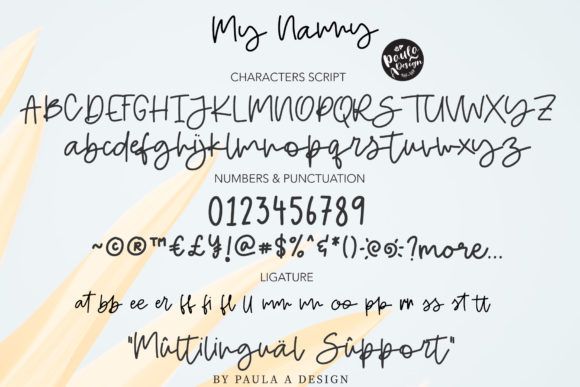 My Nanny
Paula
Design
CHARACTERS SCRIPT
ABCDEFGHIJKLMNOPQRS TUVWXYZ
abcdefghijklmnopqrstuvwxyz
NUMBERS & PUNCTUATION
0123456789
~©®™€£¥!@#$%^&*()
?more...
LIGATURE
at bb ee er ff fi fl ll mm nn oo pp rr ss st tt
"Mûltilinguäl Sûppört"
BY PAULA A DESIGN